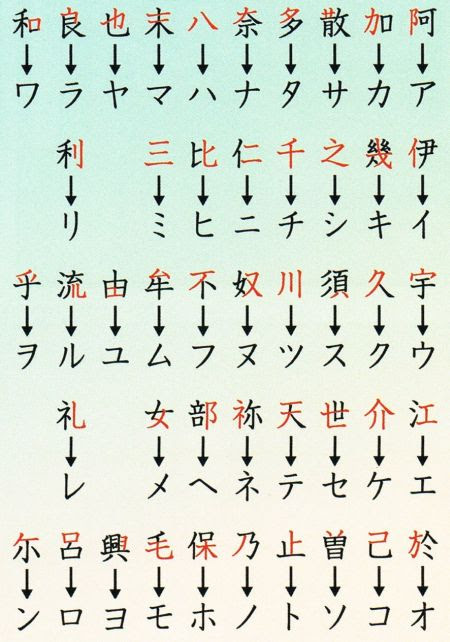 和 良 也 末 八 奈 多 散 加 阿
↓ ↓ ↓ ↓ ↓ ↓ ↓ ↓ ↓ ↓
ワ ラ ヤ マ ハ ナ タ サ カ ア
利 三 比 仁 千 之 幾 伊
↓ ↓ ↓ ↓ ↓ ↓ ↓ ↓
リ ミ ヒ ニ チ シ キ イ
乎 流 由 牟 不 奴 川 須 久 宇
↓ ↓ ↓ ↓ ↓ ↓ ↓ ↓ ↓ ↓
ヲ ル ユ ム フ ヌ ツ ス ク ウ
礼 女 部 祢 天 世 介 江
↓ ↓ ↓ ↓ ↓ ↓ ↓ ↓
レ メ ヘ ネ テ セ ケ エ
尓 呂 興 毛 保 乃 止 曽 己 於
↓ ↓ ↓ ↓ ↓ ↓ ↓ ↓ ↓ ↓
ン ロ ヨ モ ホ ノ ト ソ コ オ